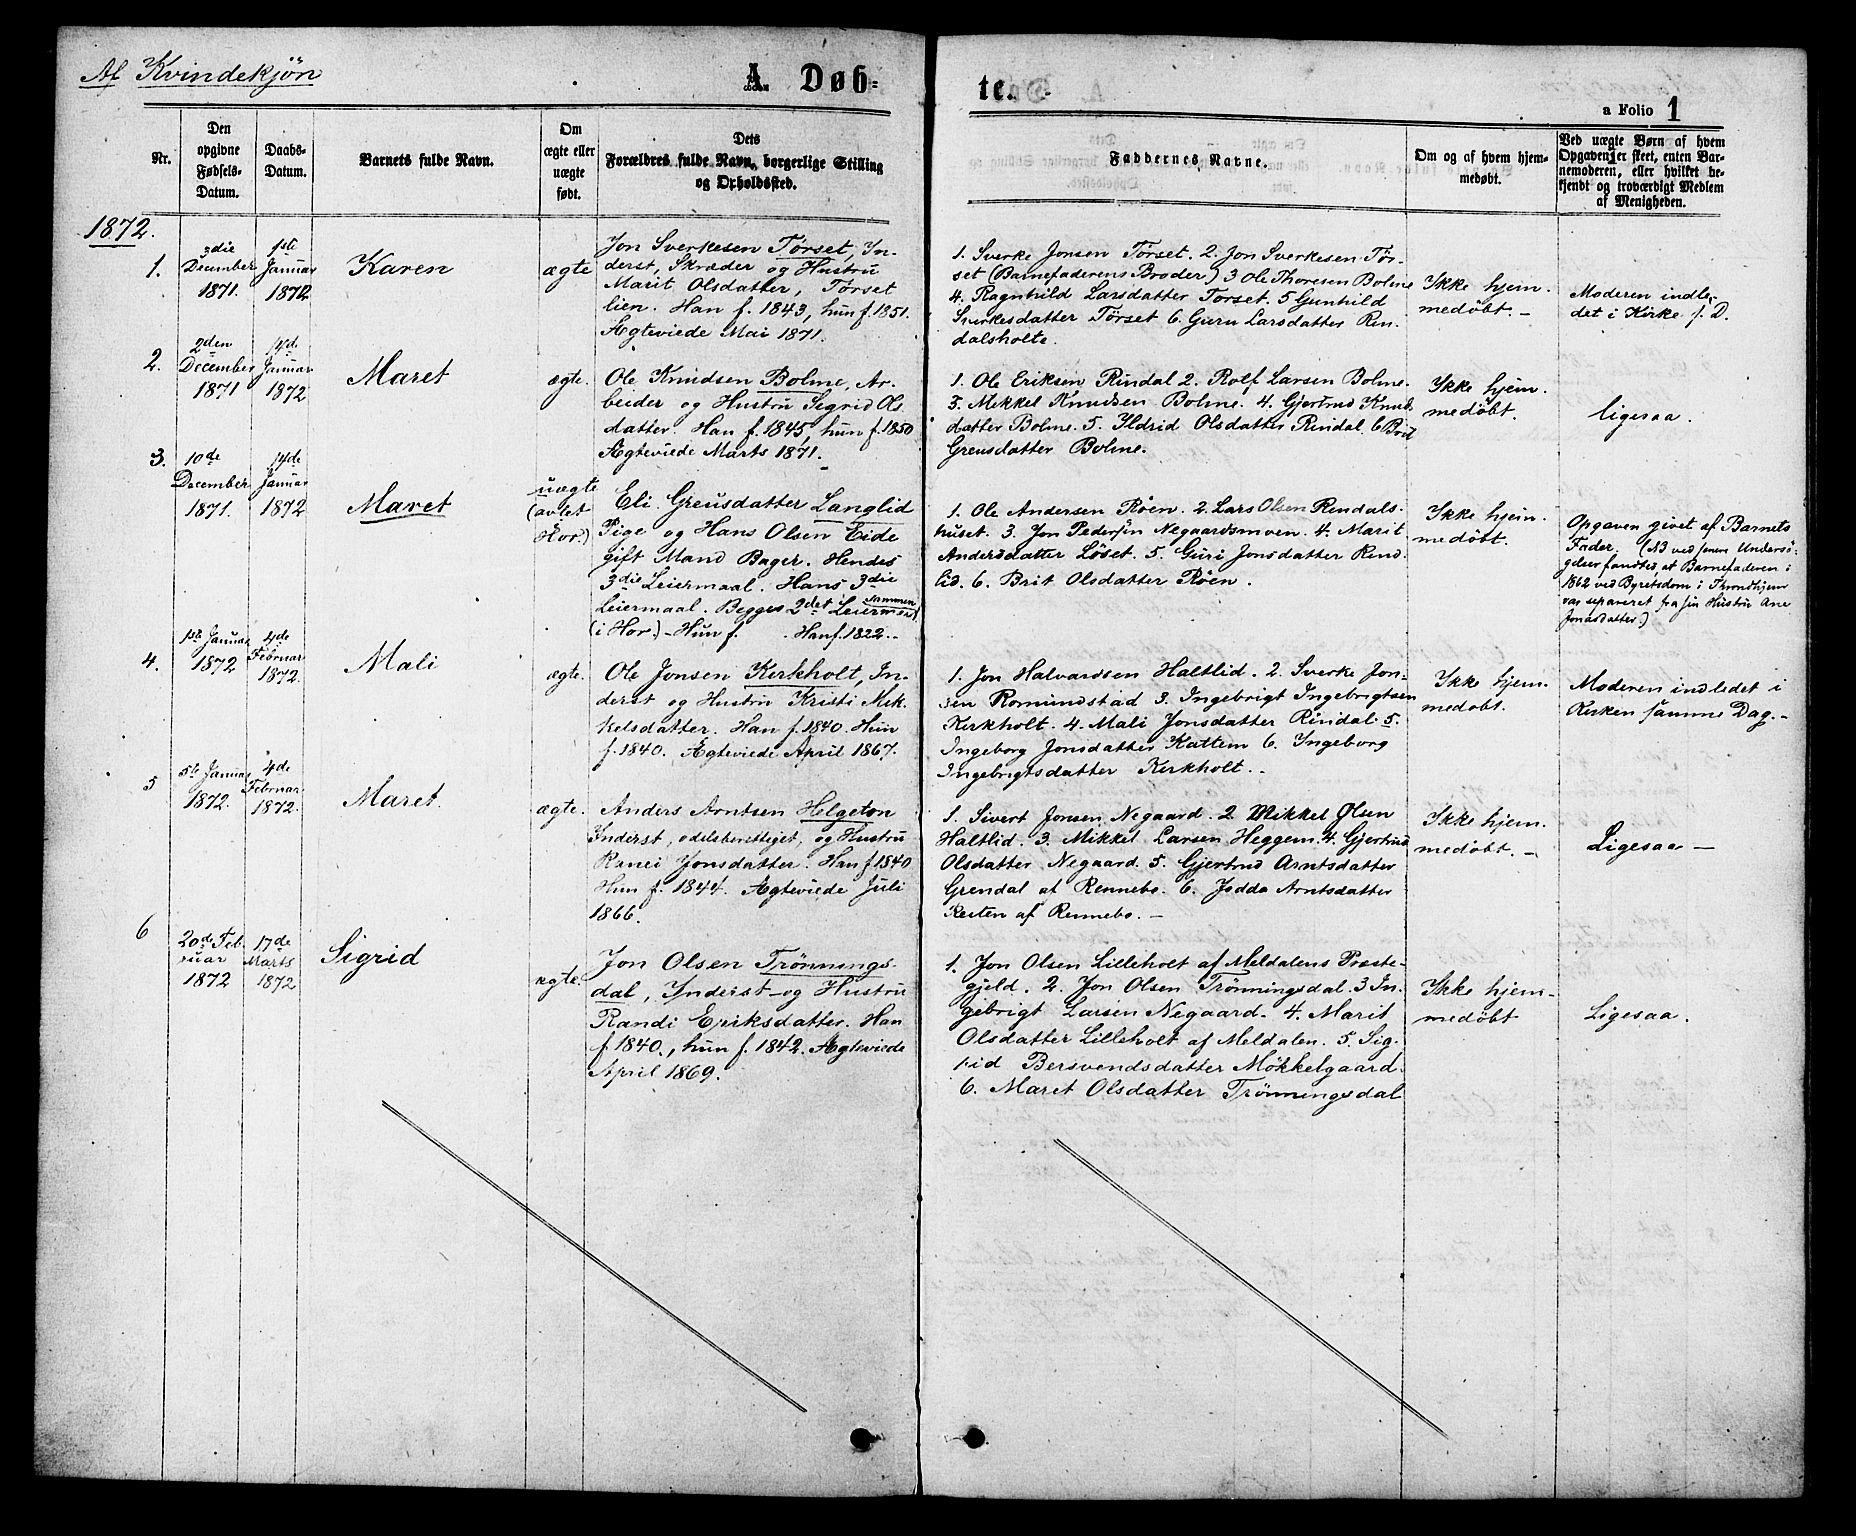 Af Kvindekjøn
A. Døb-
te.
a Folio 1
Nr.
Den opgivne Fødsels-Datum.
Daabs-Datum.
Barnets fulde Navn.
Om ægte eller uægte født.
Dets Forældres fulde Navn, borgerlige Stilling og Opholdssted.
Faddernes Navne.
Om og af hvem hjem-medøbt.
Ved uægte Børn af hvem Opgaven er skeet, enten Bar-nemoderen, eller hvilket be-kjendt og troværdigt Medlem af Menigheden.
1872.
1.
3die
December
1871.
1ste
Januar
1872
Karen
ægte
Jon Sverkesen Tørset, In-
derst, Skræder og Hustru
Marit Olsdatter, Tørset
lien. Han f. 1843, hun f. 1851.
Ægteviede Mai 1871.
1. Sverke Jonsen Tørset. 2. Jon Sverkesen Tør-
set (Barnefaderens Broder) 3 Ole Thoresen Bolme
4. Ragnhild Larsdatter Tørset. 5 Gunhild
Sverkesdatter Tørset 6. Guru Larsdatter Rin-
dalsholte.
Ikke hjem-
medøbt. –
Moderen indle-
det i Kirke s. D.
2.
2den
December
1871
1ste
Januar
1872
Maret
ægte.
Ole Knudsen Bolme, Ar-
beider og Hustru Sigrid Ols
datter. Han f. 1845, hun f. 1850
Ægteviede Marts 1871.
1. Ole Eriksen Rindal 2. Rolf Larsen Bolme.
3. Mikkel Knudsen Bolme. 4. Gjertrud Knuds
datter Bolme. 5. Ildrid Olsdatter Rindal. 6 Brit
Greusdatter Bolme.
Ikke hjem-
medøbt.
ligesaa.
3.
10de
December
1871.
Januar
1872
Maret
uægte
(avlet
Hor.)
Eli Greusdatter Langlid
Pige og Hans Olsen Eide
gift Mand Bager. Hendes
3die Leiermaal. Hans 3die
Leiermaal. Begges 2det Leiermaal sammen
(i Hor.) – Hun f. . Han f. 1822. –
1. Ole Andersen Røen. 2. Lars Olsen Rindals-
huset. 3. Jon Pedersen Negaardsmoen. 4. Marit
Andersdatter Løset. 5. Guri Jonsdatter Rind-
lid. 6. Brit Olsdatter Røen.
Ikke hjem-
medøbt.
Opgaven givet af Barnets
Fader. (NB ved senere Undersø-
gelser fandtes at Barnefaderen i
1862 ved Byretsdom i Trondhjem
var separeret fra sin Hustru Ane
Jonasdatter.)
4.
1ste Januar
1872
4de
Februar
1872.
Mali
ægte.
Ole Jonsen Kirkholt, In-
derst og Hustru Kristi Mik-
kelsdatter. Han f. 1840. Hun
f. 1840. Ægteviede April 1867.
1. Jon Halvardsen Haltlid. 2. Sverke Jon-
sen Romundstad 3. Ingebrigt Ingebrigtsen
Kirkholt. 4. Mali Jonsdatter Rindal 5.
Ingeborg Jonsdatter Kattem 6. Ingeborg
Ingebrigtsdatter Kirkholt. –
Ikke hjem-
medøbt.
Moderen indledet i
Kirken samme Dag. –
5
5te Januar
1872.
4de
Februar
1872.
Maret.
ægte.
Anders Arntsen Helgeton
Inderst, odelsberettiget, og Hustru
Ranei Jonsdatter. Han f 1840
Hun f. 1844. Ægteviede Juli
1866.
1. Sivert Jonsen Negaard. 2 Mikkel Olsen
Haltlid. 3. Mikkel Larsen Heggem. 4. Gjertrud
Olsdatter Negaard. 5. Gjertrud Arntsdatter
Grendal af Rennebo. 6. Jodda Arntsdatter
af Rennebo. –
Ikke hjem-
medøbt. –
Ligesaa –
6
20de Feb-
ruar
1872
17de
Marts
1872
Sigrid
ægte.
Jon Olsen Trønnings-
dal, Inderst og Hustru
Randi Eriksdatter. Han
f. 1840., hun f. 1842. Ægteviede
April 1869.
1. Jon Olsen Lilleholt af Meldalens Præste-
gjeld. 2. Jon Olsen Trønningsdal. 3 In-
gebrigt Larsen Negaard. 4. Marit
Olsdatter Lilleholt af Meldalen. 5. Sig-
rid Bersvendsdatter Møkkelgaard.
6. Maret Olsdatter Trønningsdal
Ikke hjem-
medøbt
Ligesaa.